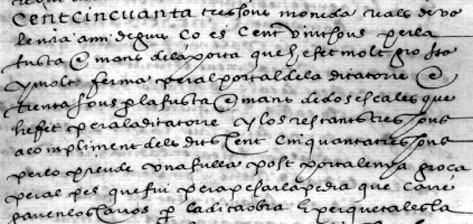 Cent cinquanta tres sous moneda reals de va
lencia a mi deguts Ço es Cent vint sous per la
fusta e mans de la porta que he fet molt grosta
y molt ferma peral portal de la ditatorre e
trenta sous p la fusta e mans de dos escales que
he fet pera la ditatorre y los restants tres sous
a compliment dels dits Cent cinquanta tres sous
per lo preu de una fulla post portalenya groça
peral pes que fui pera pesar la pedra que Carre
garen los Carros p la dita obra E per que tal es la